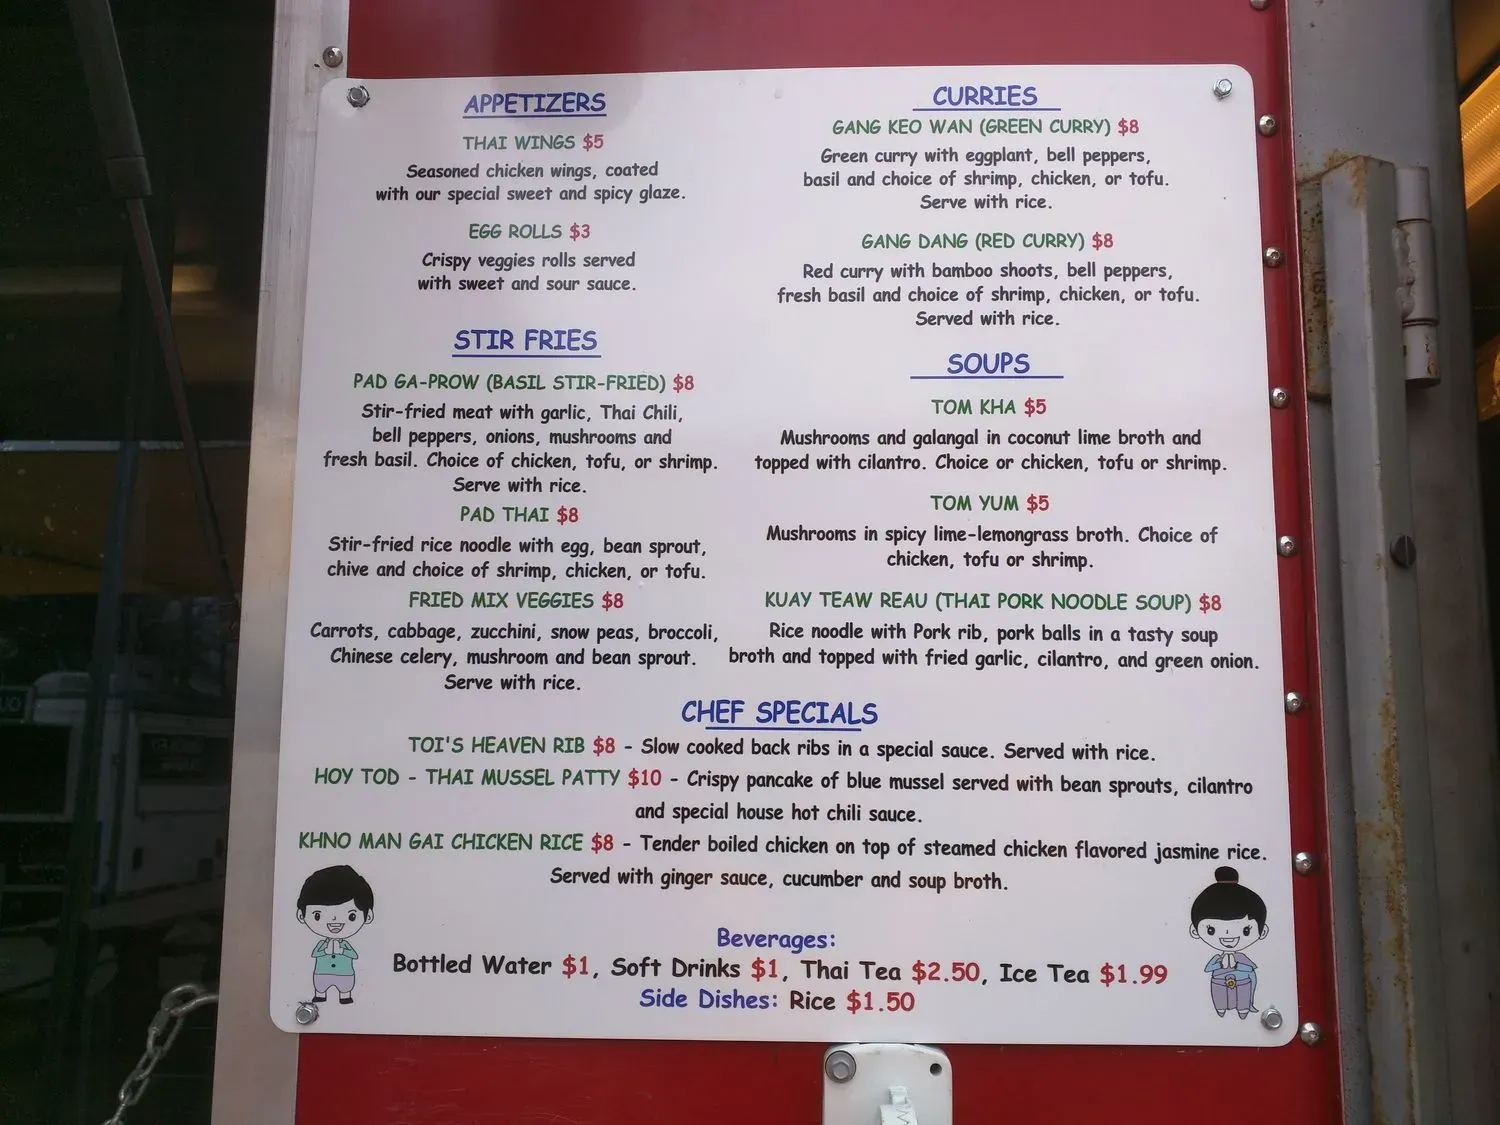 APPETIZERS
THAI WINGS $5
Seasoned chicken wings, coated
with our special sweet and spicy glaze.
EGG ROLLS $3
Crispy veggies rolls served
with sweet and sour sauce.
STIR FRIES
PAD GA-PROW (BASIL STIR-FRIED) $8
Stir-fried meat with garlic, Thai Chili,
bell peppers, onions, mushrooms and
fresh basil. Choice of chicken, tofu, or shrimp.
Serve with rice.
PAD THAI $8
Stir-fried rice noodle with egg, bean sprout,
chive and choice of shrimp, chicken, or tofu.
FRIED MIX VEGGIES $8
Carrots, cabbage, zucchini, snow peas, broccoli,
Chinese celery, mushroom and bean sprout.
Serve with rice.
CURRIES
GANG KEO WAN (GREEN CURRY) $8
Green curry with eggplant, bell peppers,
basil and choice of shrimp, chicken, or tofu.
Serve with rice.
GANG DANG (RED CURRY) $8
Red curry with bamboo shoots, bell peppers,
fresh basil and choice of shrimp, chicken, or tofu.
Served with rice.
SOUPS
TOM KHA $5
Mushrooms and galangal in coconut lime broth and
topped with cilantro. Choice or chicken, tofu or shrimp.
TOM YUM $5
Mushrooms in spicy lime-lemongrass broth. Choice of
chicken, tofu or shrimp.
KUAY TEAW REAU (THAI PORK NOODLE SOUP) $8
Rice noodle with Pork rib, pork balls in a tasty soup
broth and topped with fried garlic, cilantro, and green onion.
CHEF SPECIALS
TOI'S HEAVEN RIB $8 - Slow cooked back ribs in a special sauce. Served with rice.
HOY TOD - THAI MUSSEL PATTY $10 - Crispy pancake of blue mussel served with bean sprouts, cilantro
and special house hot chili sauce.
KHNO MAN GAI CHICKEN RICE $8 - Tender boiled chicken on top of steamed chicken flavored jasmine rice.
Served with ginger sauce, cucumber and soup broth.
Beverages:
Bottled Water $1, Soft Drinks $1, Thai Tea $2.50, Ice Tea $1.99
Side Dishes: Rice $1.50